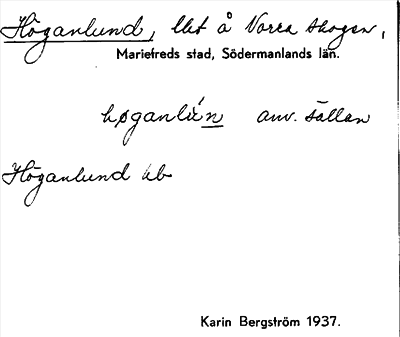 Höganlund, lht å Norra skogen,
Mariefreds stad, Södermanlands län.
høganlún anv. sällan
Höganlund hb
Karin Bergström 1937.